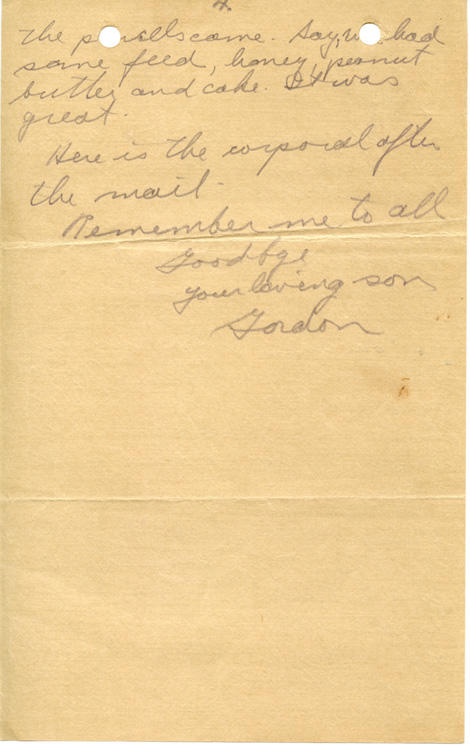 4.
the parcells came. Say, we had
some feed, honey, peanut
butter and cake. It was
great.
Here is the corporal after
the mail.
Remember me to all
Goodbye
Your loving son
Gordon